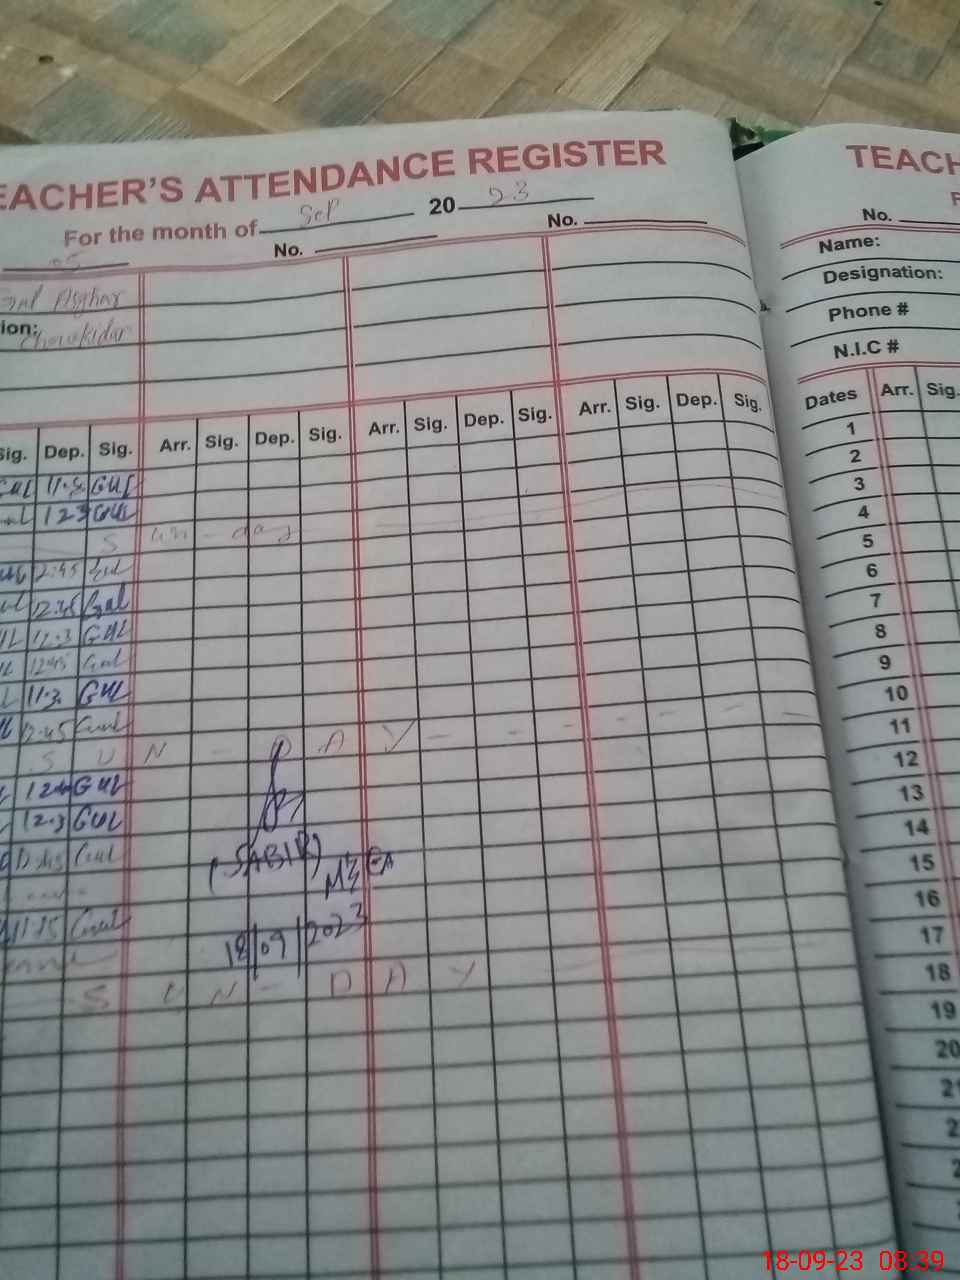 TEACHER'S ATTENDANCE REGISTER
For the month of Sep 20 23
No. 05 No. No.
Gul Asghar
ion: Chowkidar
Sig. Dep. Sig. Arr. Sig. Dep. Sig. Arr. Sig. Dep. Sig. Arr. Sig. Dep. Sig.
GUL 11:5 GUL
12:3 GUL
S un - day
12:45 Gul
12:45 Gul
12:3 GUL
12:45 Gul
11:3 GUL
12:45 Gul
S U N - D A Y - - - - - - -
12:4 GUL
12:3 GUL
12:45 Gul
(SABIR)
M&EA
11:15 Gul
18/09/2023
S U N - D A Y
TEACH
F
No.
Name:
Designation:
Phone #
N.I.C #
Dates Arr. Sig.
1
2
3
4
5
6
7
8
9
10
11
12
13
14
15
16
17
18
19
20
21
2
2
18-09-23 08:39